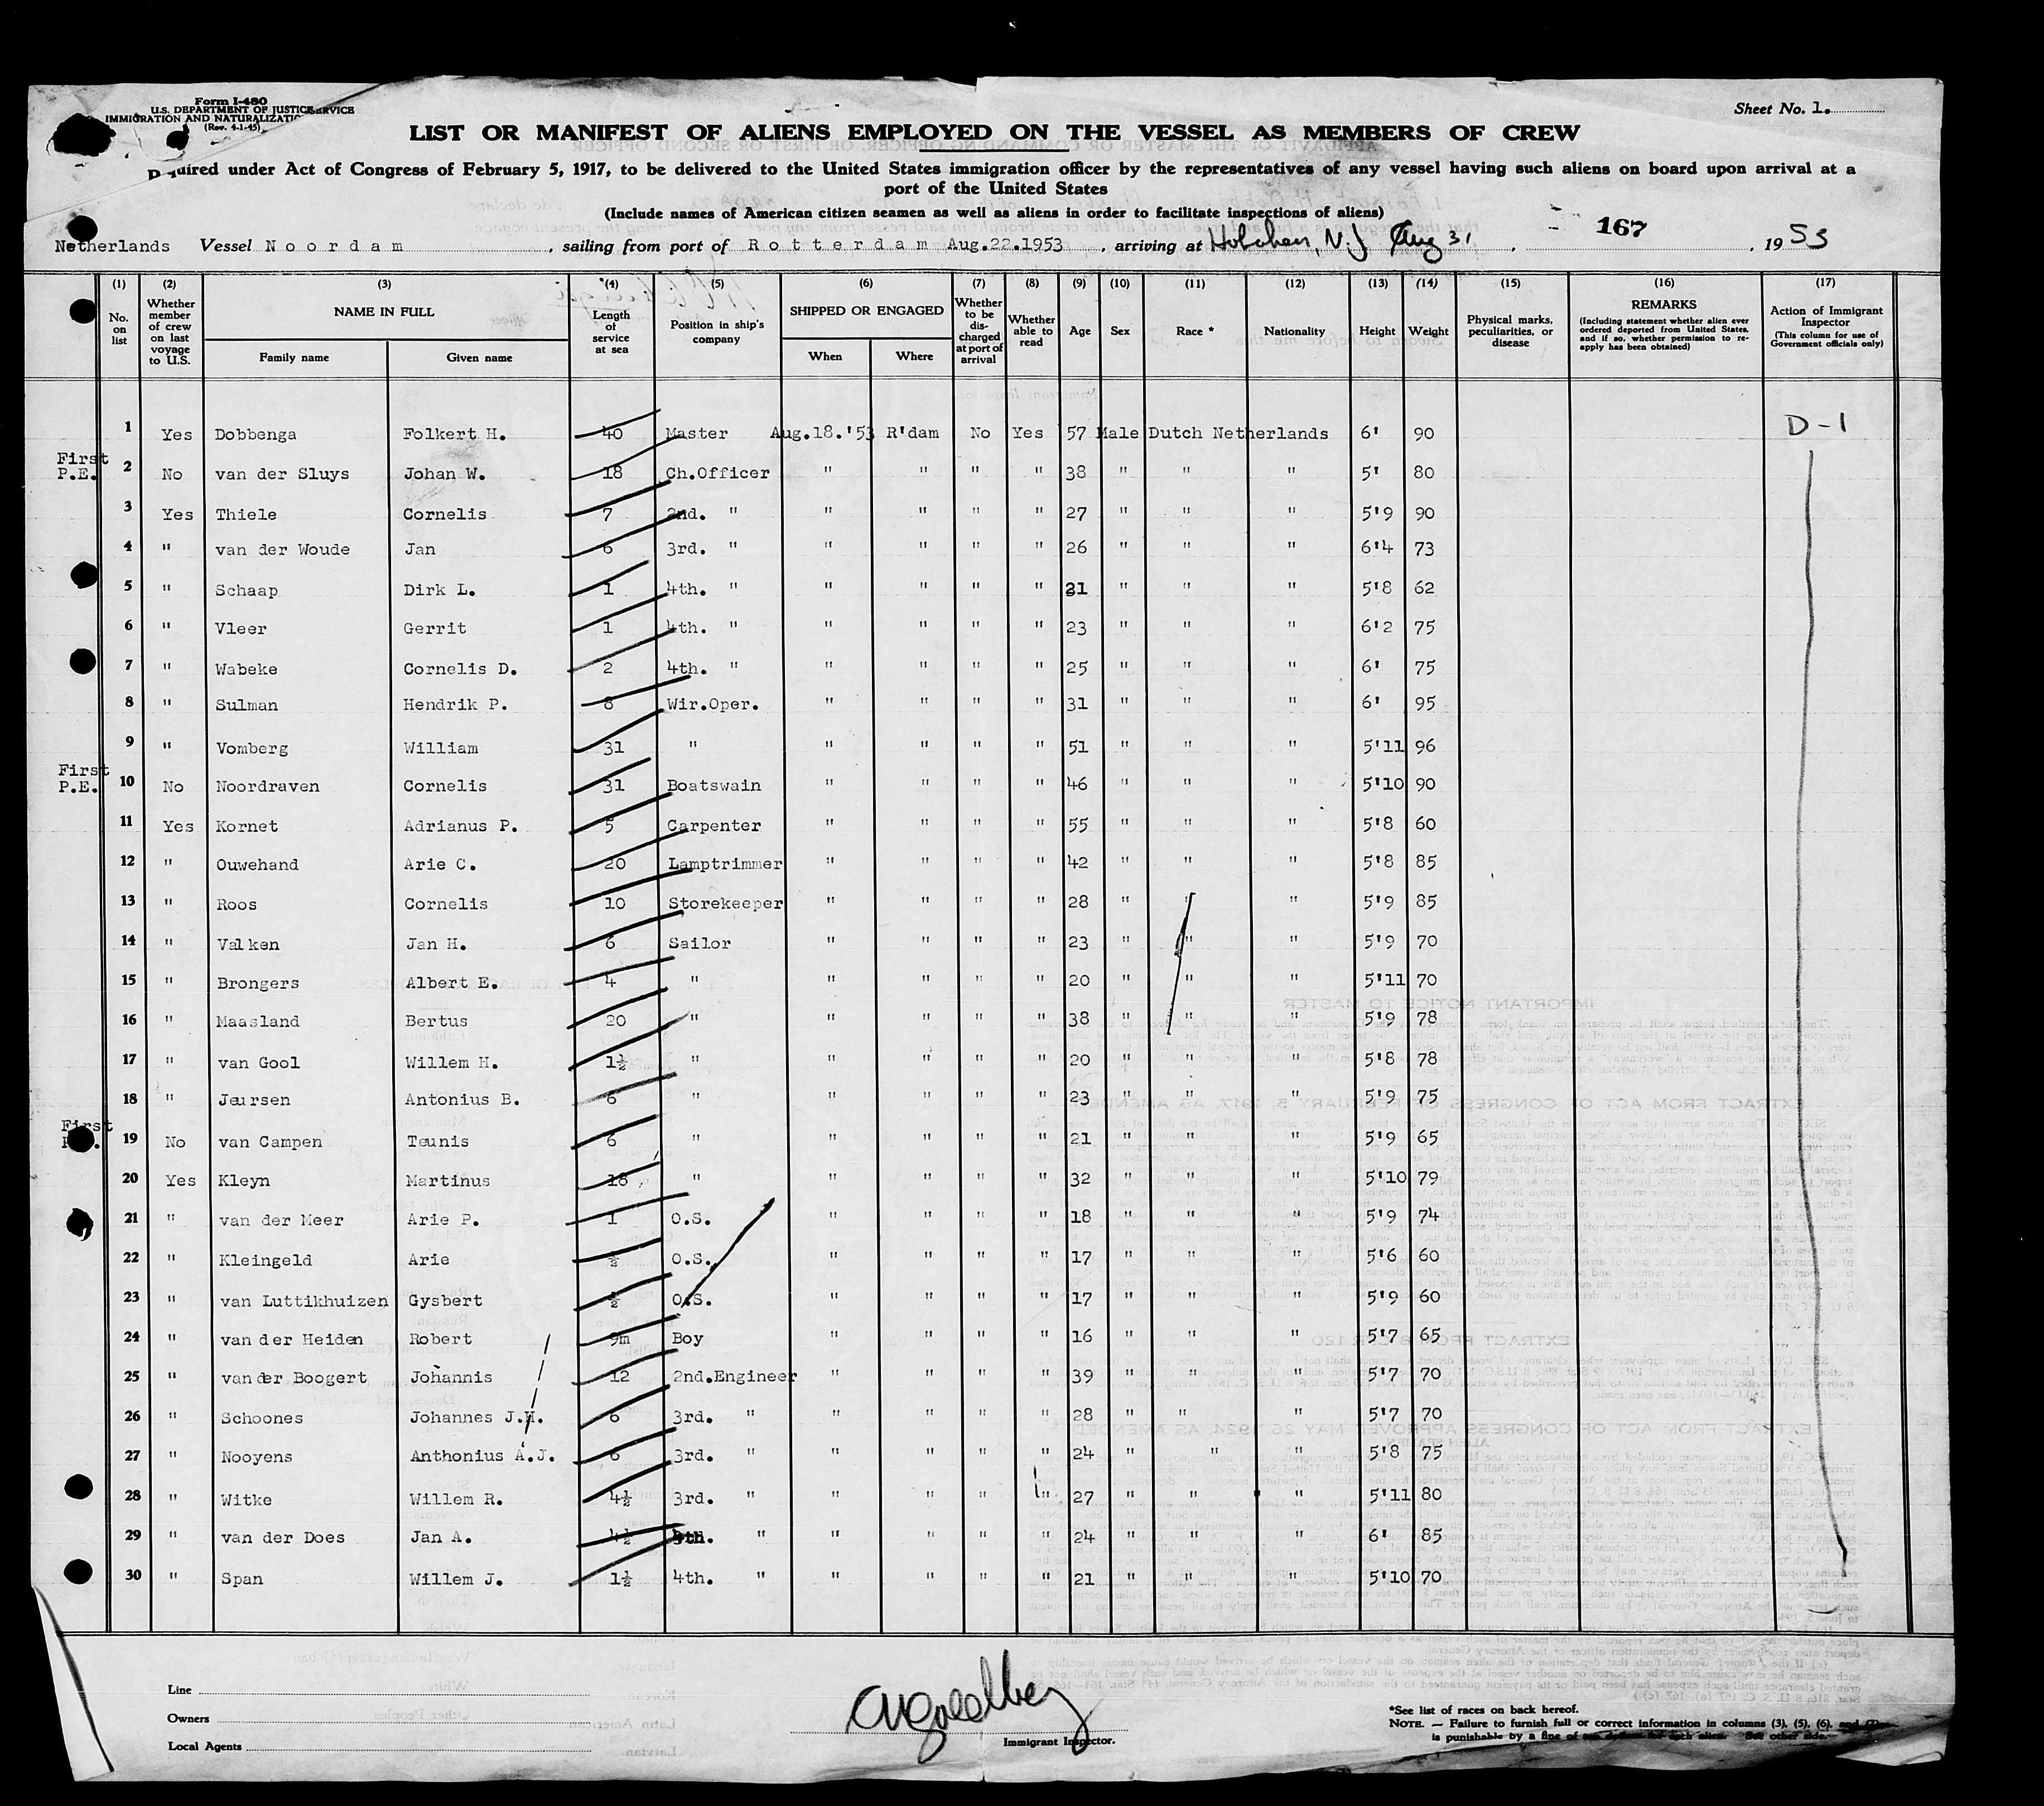 Form I-480
U.S. DEPARTMENT OF JUSTICE
IMMIGRATION AND NATURALIZATION SERVICE
(Rev. 4-1-45)
Sheet No. 1.
LIST OR MANIFEST OF ALIENS EMPLOYED ON THE VESSEL AS MEMBERS OF CREW
Required under Act of Congress of February 5, 1917, to be delivered to the United States immigration officer by the representatives of any vessel having such aliens on board upon arrival at a
port of the United States
(Include names of American citizen seamen as well as aliens in order to facilitate inspections of aliens)
167
Netherlands Vessel Noordam, sailing from port of Rotterdam Aug.22.1953, arriving at Hoboken, N.J. Aug 31, 1953
(1) (2) (3) (4) (5) (6) (7) (8) (9) (10) (11) (12) (13) (14) (15) (16) (17)
No. on list
Whether member of crew on last voyage to U.S.
NAME IN FULL
Family name Given name
Length of service at sea
Position in ship's company
SHIPPED OR ENGAGED
When Where
Whether to be discharged at port of arrival
Whether able to read
Age
Sex
Race *
Nationality
Height
Weight
Physical marks, peculiarities, or disease
REMARKS
(Including statement whether alien ever ordered deported from United States, and if so, whether permission to re-apply has been obtained)
Action of Immigrant Inspector
(This column for use of Government officials only)
1 Yes Dobbenga Folkert H. 40 Master Aug.18.'53 R'dam No Yes 57 Male Dutch Netherlands 6' 90 D-1
First P.E. 2 No van der Sluys Johan W. 18 Ch.Officer " " " " 38 " " " 5' 80
3 Yes Thiele Cornelis 7 2nd. " " " " " 27 " " " 5'9 90
4 " van der Woude Jan 6 3rd. " " " " " 26 " " " 6'4 73
5 " Schaap Dirk L. 1 4th. " " " " " 21 " " " 5'8 62
6 " Vleer Gerrit 1 4th. " " " " " 23 " " " 6'2 75
7 " Wabeke Cornelis D. 2 4th. " " " " " 25 " " " 6' 75
8 " Sulman Hendrik P. 8 Wir.Oper. " " " " 31 " " " 6' 95
9 " Vomberg William 31 " " " " " 51 " " " 5'11 96
First P.E. 10 No Noordraven Cornelis 31 Boatswain " " " " 46 " " " 5'10 90
11 Yes Kornet Adrianus P. 5 Carpenter " " " " 55 " " " 5'8 60
12 " Ouwehand Arie C. 20 Lamptrimmer " " " " 42 " " " 5'8 85
13 " Roos Cornelis 10 Storekeeper " " " " 28 " " " 5'9 85
14 " Valken Jan H. 6 Sailor " " " " 23 " " " 5'9 70
15 " Brongers Albert E. 4 " " " " " 20 " " " 5'11 70
16 " Maasland Bertus 20 " " " " " 38 " " " 5'9 78
17 " van Gool Willem H. 1½ " " " " " 20 " " " 5'8 78
18 " Jeursen Antonius B. 6 " " " " " 23 " " " 5'9 75
First 19 No van Campen Teunis 6 " " " " " 21 " " " 5'9 65
20 Yes Kleyn Martinus 18 " " " " " 32 " " " 5'10 79
21 " van der Meer Arie P. 1 O.S. " " " " 18 " " " 5'9 74
22 " Kleingeld Arie ½ O.S. " " " " 17 " " " 5'6 60
23 " van Luttikhuizen Gysbert ½ O.S. " " " " 17 " " " 5'9 60
24 " van der Heiden Robert 9m Boy " " " " 16 " " " 5'7 65
25 " van der Boogert Johannis 12 2nd.Engineer " " " " 39 " " " 5'7 70
26 " Schoones Johannes J.H. 6 3rd. " " " " " 28 " " " 5'7 70
27 " Nooyens Anthonius A.J. 6 3rd. " " " " " 24 " " " 5'8 75
28 " Witke Willem R. 4½ 3rd. " " " " " 27 " " " 5'11 80
29 " van der Does Jan A. 4½ " " " " " 24 " " " 6' 85
30 " Span Willem J. 1½ 4th. " " " " " 21 " " " 5'10 70
Line
Owners
Local Agents
Immigrant Inspector.
*See list of races on back hereof.
NOTE. — Failure to furnish full or correct information in columns (3), (5), (6), and (7)
is punishable by a fine of ten dollars for each alien. See other side.